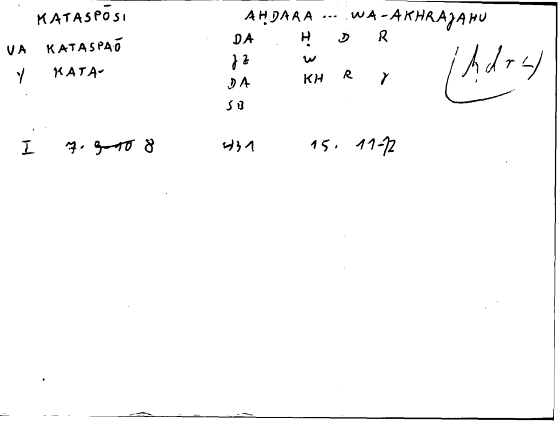 KATASPŌSI AḤDARA ... WA-AKHRAJAHU
VA KATASPAŌ DA Ḥ D R
JZ W
Y KATA- DA KH R J
SB
(ḥdr
I 7. 8 431 15. 11-12